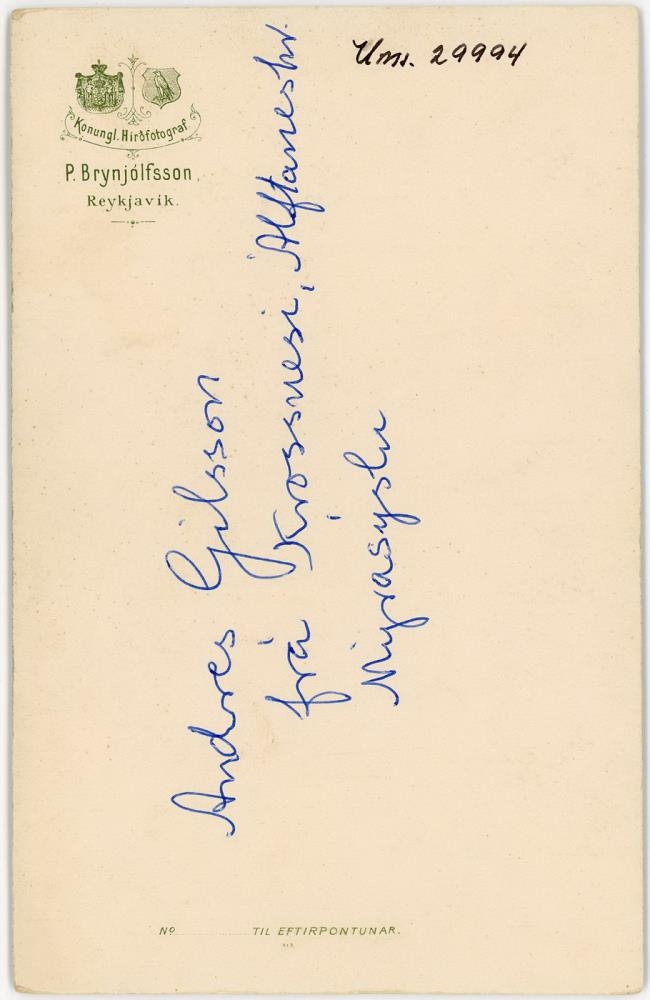 Konungl. Hirðfotograf
P. Brynjólfsson.
Reykjavík.
Ums. 29994
Andres Gilsson
frá Krossnesi, Álftaneshr.
Mýrasýslu
Nº TIL EFTIRPONTUNAR.